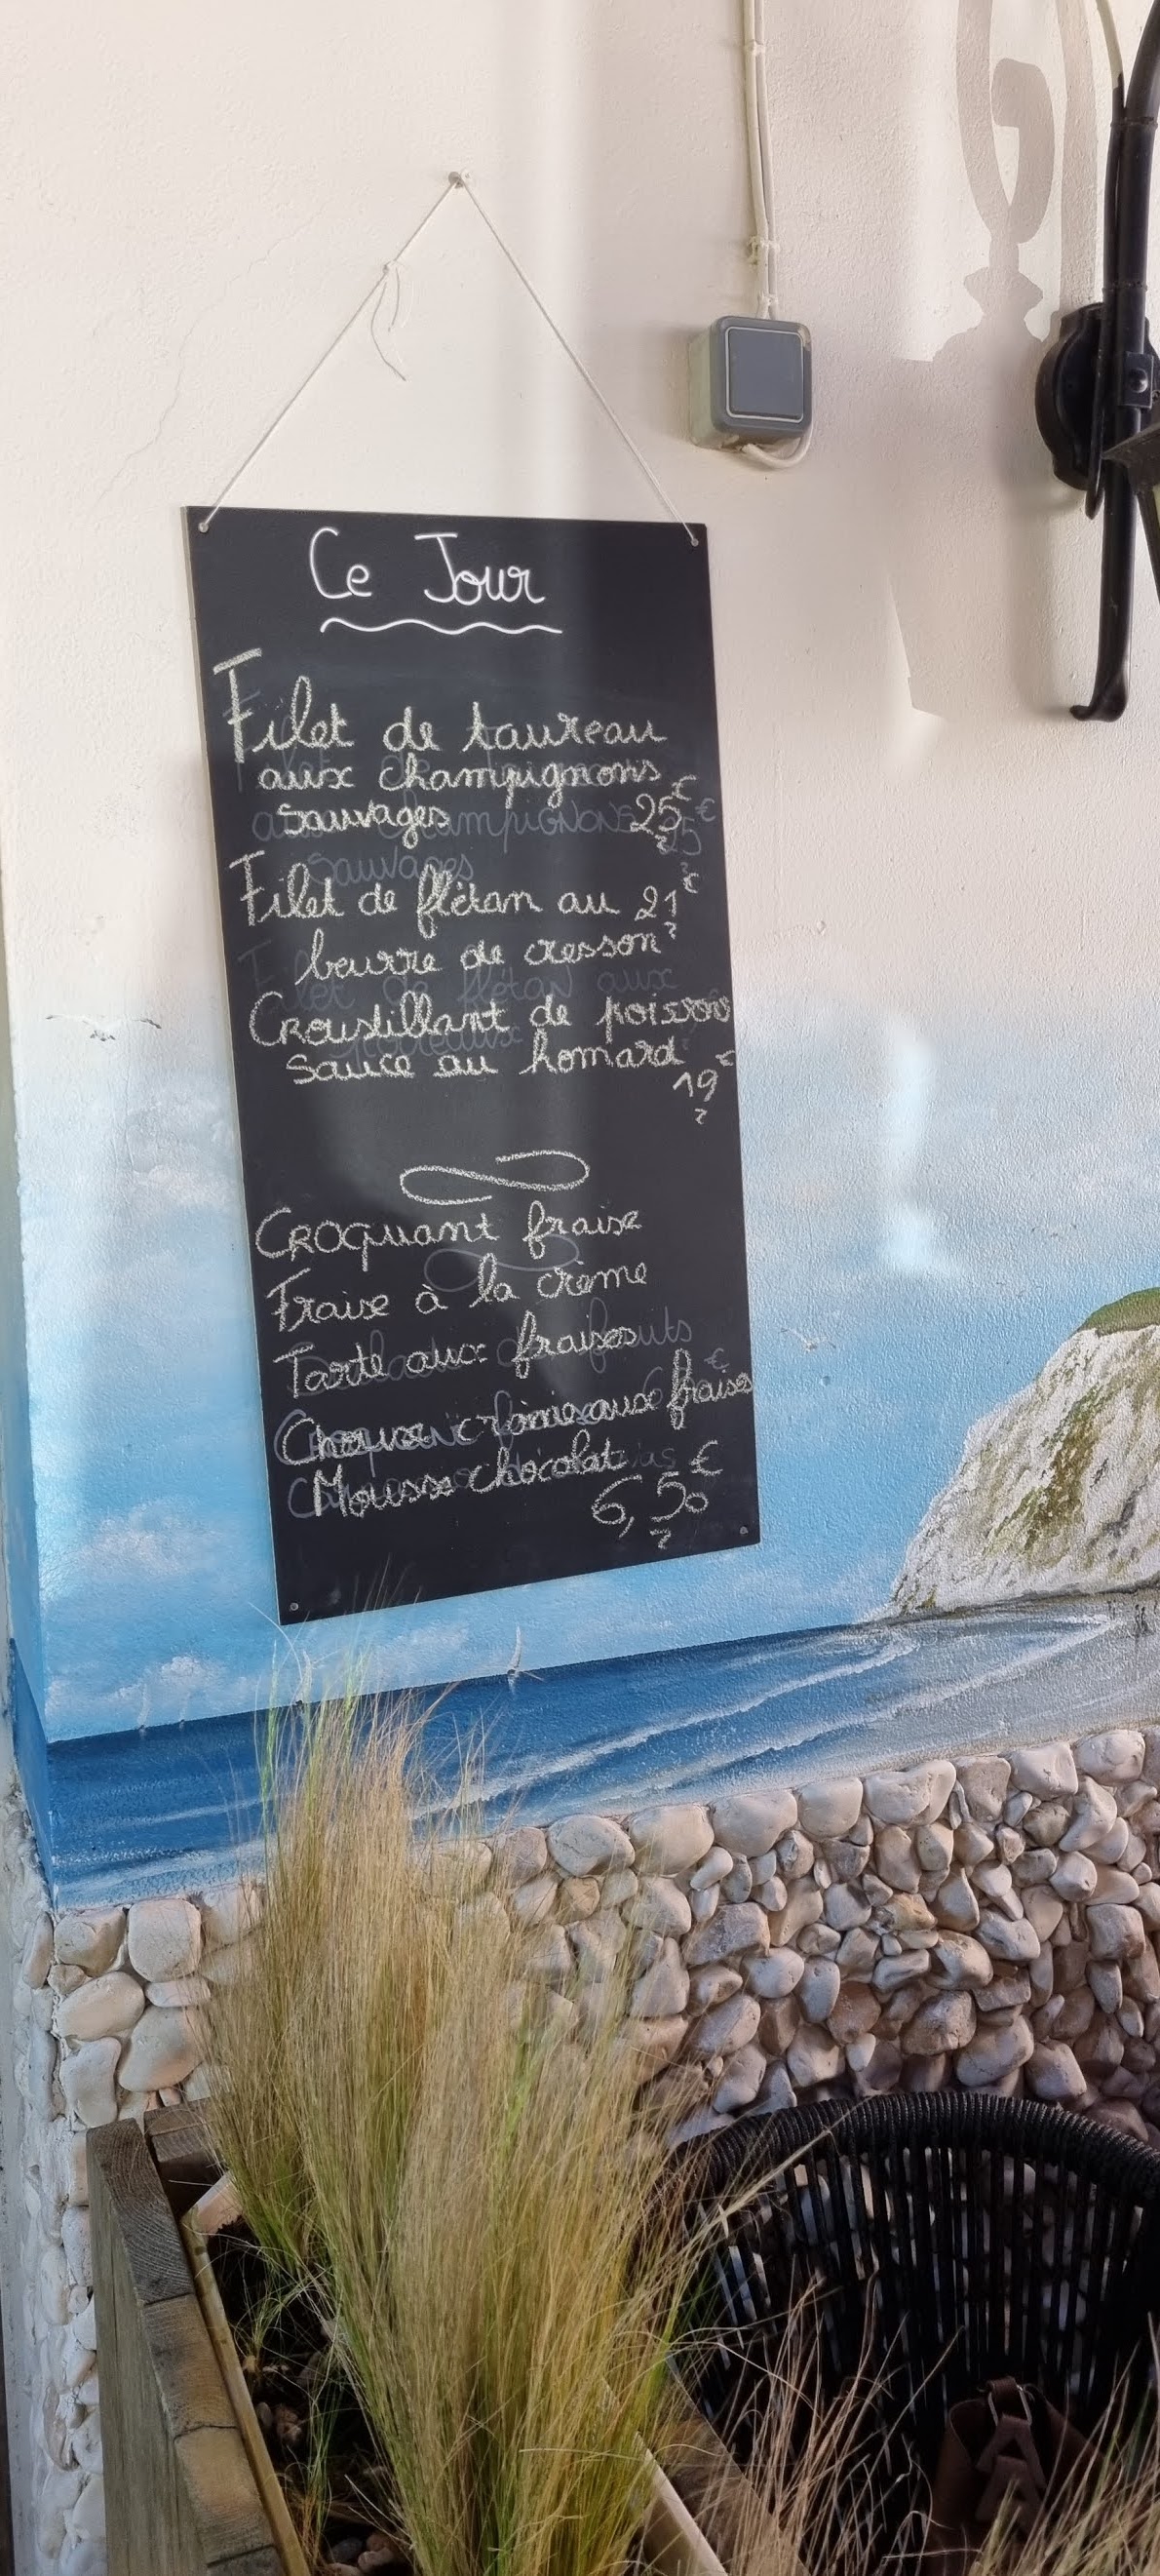 Ce Jour
Filet de taureau
aux champignons
Sauvages 25€
Filet de flétan au 21€
beurre de cresson
Croustillant de poissons
Sauce au homard
19€
Croquant fraise
Fraise à la crème
Tarte aux fraises
Choux crème aux fraises
Mousse chocolat
6,50€